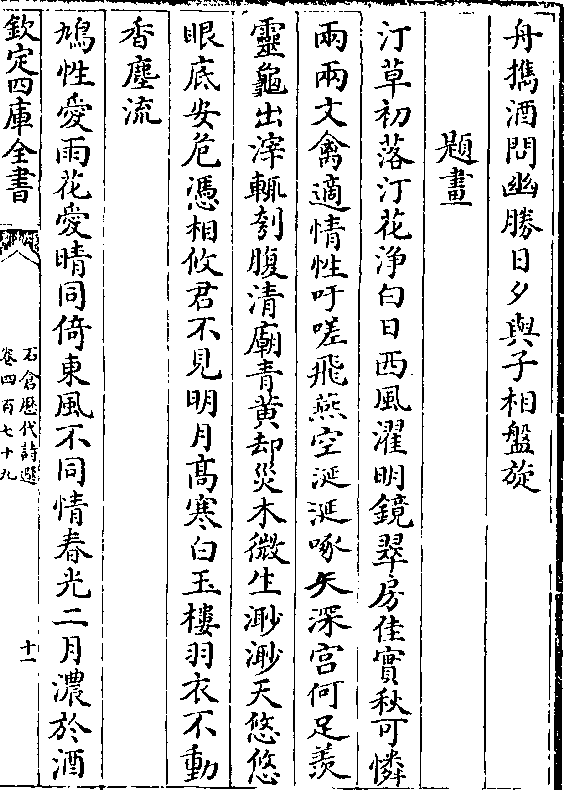 舟携酒問幽勝日夕與子相盤旋
題畫
汀草初落汀花浄白日西風濯明鏡翠房佳實秋可憐
兩兩文禽適情性吁嗟飛燕空涎涎啄矢深宫何足羡
靈龜出滓輒刳腹清廟青黄却災木微生渺渺天悠悠
眼底安危憑相攸君不見明月髙寒白玉樓羽衣不動
香塵流
鳩性愛雨花愛晴同倚東風不同情春光二月濃於酒
欽定四庫全書
石倉歴代詩選
卷四百七十九
十一